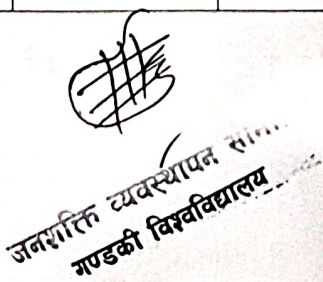 जनशक्ति व्यवस्थापन
गण्डकी विश्वविद्यालय